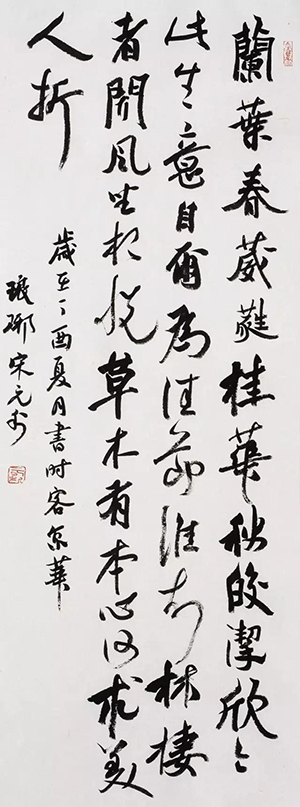 蘭葉春葳蕤桂華秋皎潔欣〻
此生意自爾為佳節誰知林棲
者聞風坐相悅草木有本心何求美
人折
歲在丁酉夏月書时客京華
琅琊宋元